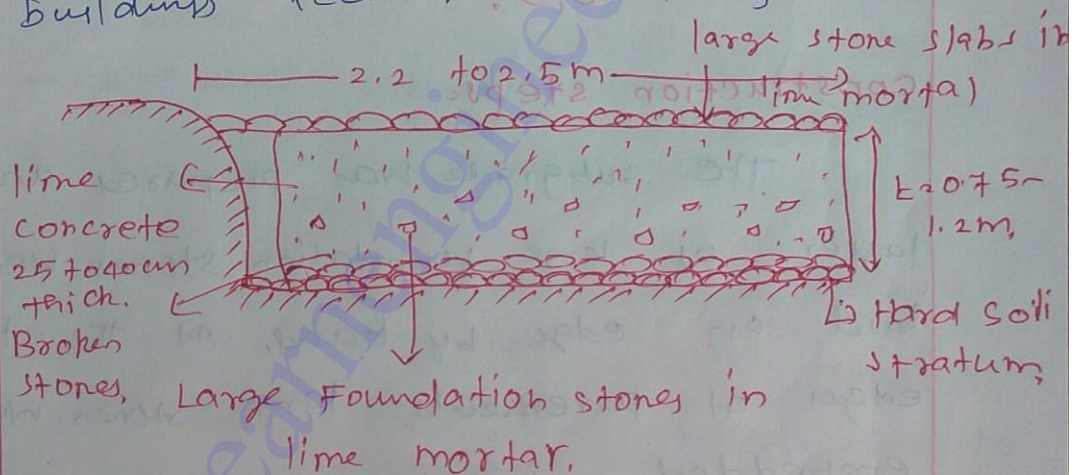 buildings
large stone slabs in
lime mortar
2.2 to 2.5m
lime
concrete
25 to 40 cm
thick.
Broken
stones,
t = 0.75 -
1.2m,
Hard soil
stratum,
Large Foundation stones in
lime mortar.